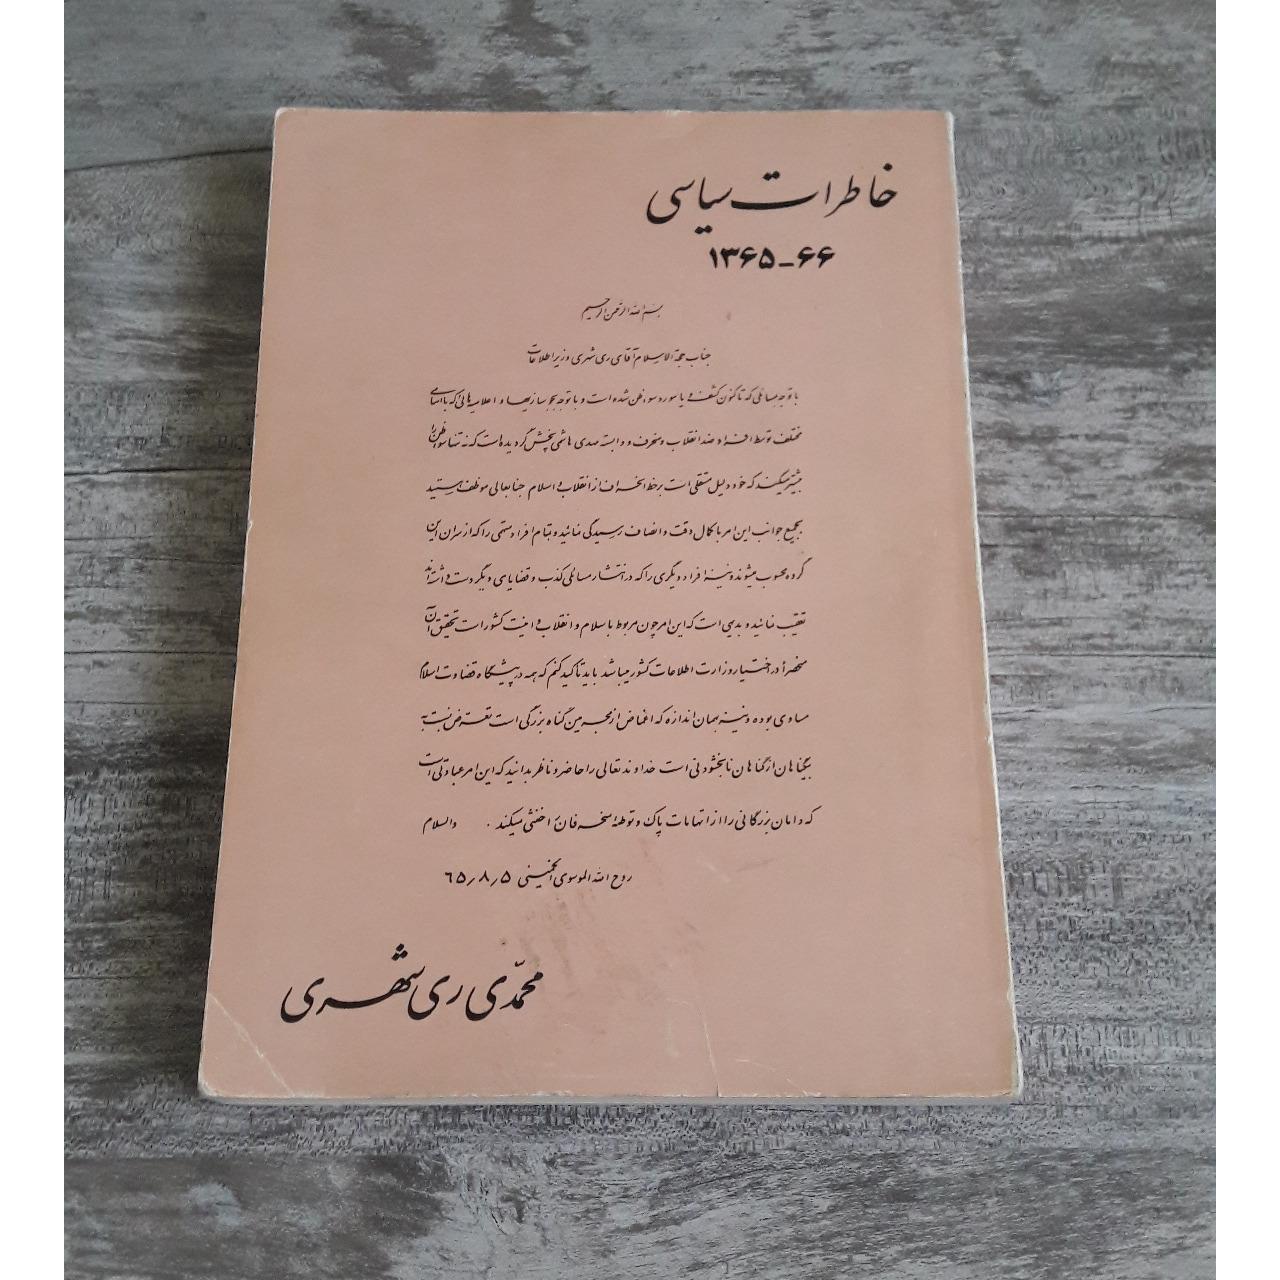 خاطرات سیاسی
۱۳۶۵-۶۶
بسم الله الرحمن الرحیم
جناب حجة الاسلام آقای ری شهری وزیر اطلاعات
با توجه بمسائلی که تاکنون کشف و یا مورد سوءظن شده است و با توجه بجوسازیها و اعلامیه هائی که با اسامی
مختلف توسط افراد ضد انقلاب و منحرف و وابسته مهدی هاشمی پخش گردیده است که نه تنها سوءظن را
بیشتر میکند که خود دلیل مستقلی است بر خط انحراف از انقلاب و اسلام جنابعالی موظف هستید
بجمیع جوانب این امر با کمال دقت و انصاف رسیدگی نمائید و تمام افراد متهمی را که از سران این
گروه محسوب میشوند و نیز افراد دیگری را که در انتشار مسائل کذب و قضایای دیگر دست داشته اند
تعقیب نمائید و بدیهی است که این امر چون مربوط باسلام و انقلاب و امنیت کشور است تحقیق آن
منحصراً در اختیار وزارت اطلاعات کشور میباشد باید تاکید کنم که همه در پیشگاه قضاوت اسلام
مساوی بوده و نیز بهمان اندازه که اغماض از مجرمین گناه بزرگی است تعرض نسبت به
بیگناهان از گناهان نابخشودنی است خداوند تعالی را حاضر و ناظر بدانید که این امر عبادتی است
که دامان بزرگانی را از اتهامات پاک و توطئه منحرفان را خنثی میکند . والسلام
روح الله الموسوی الخمینی ۶۵٫۸٫۵
محمّدی ری شهری